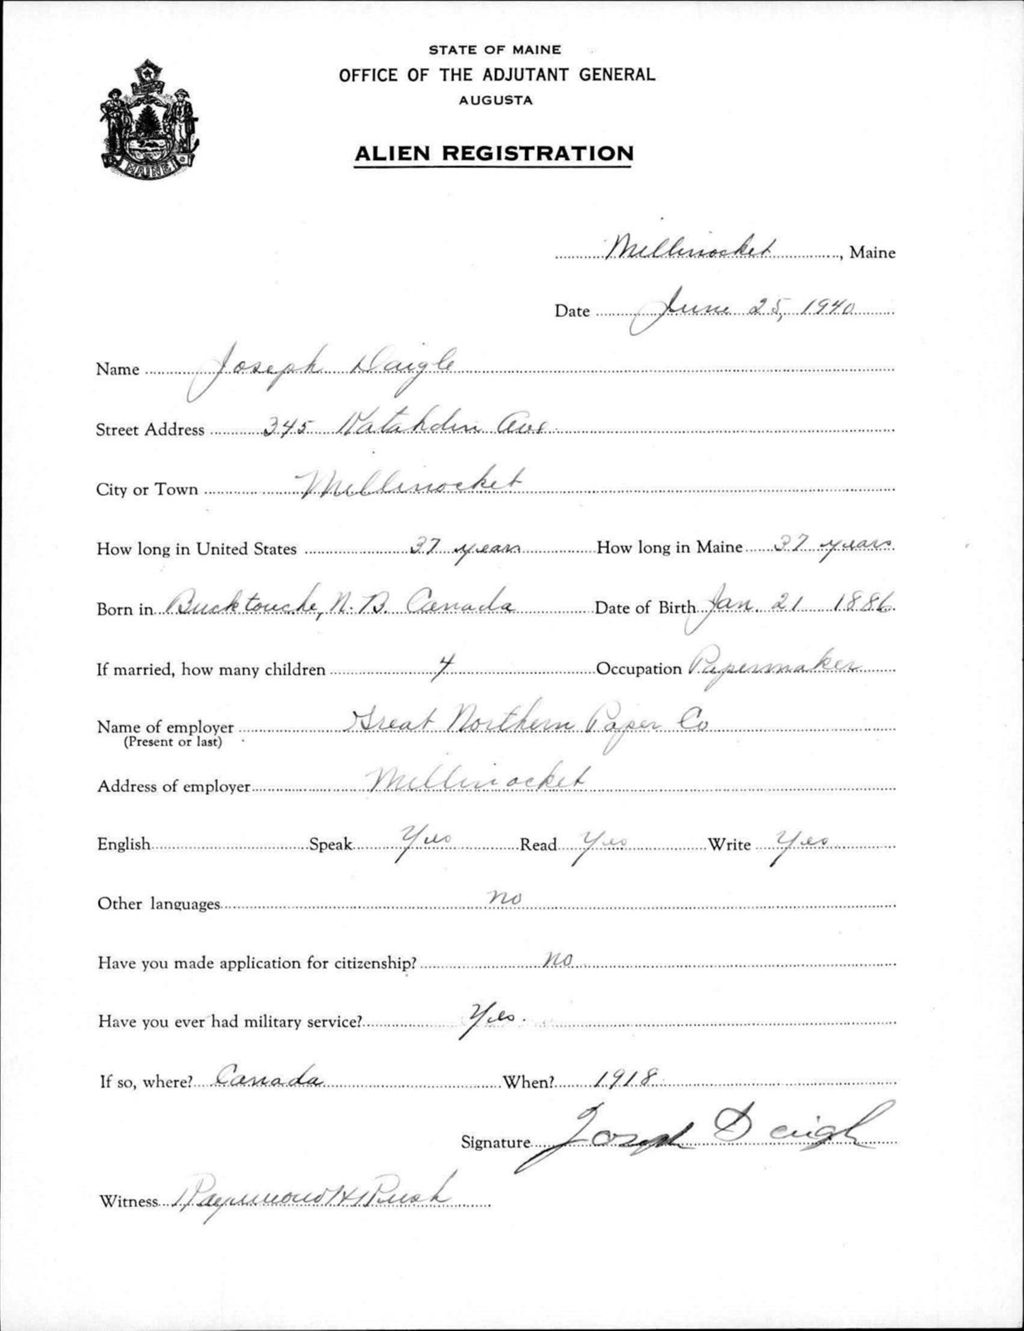 STATE OF MAINE
OFFICE OF THE ADJUTANT GENERAL
AUGUSTA
ALIEN REGISTRATION
MAINE
Millinocket, Maine
Date June 25, 1940
Name Joseph Daigle
Street Address 345 Katahdin Ave.
City or Town Millinocket
How long in United States 37 years How long in Maine 37 years
Born in Bucktouche, N.B. Canada Date of Birth Jan. 21 1886
If married, how many children 4 Occupation Papermaker
Name of employer Great Northern Paper Co
(Present or last)
Address of employer Millinocket
English Speak Yes Read Yes Write Yes
Other languages no
Have you made application for citizenship? no
Have you ever had military service? Yes.
If so, where? Canada When? 1918
Signature Joseph Daigle
Witness Raymond H Rush